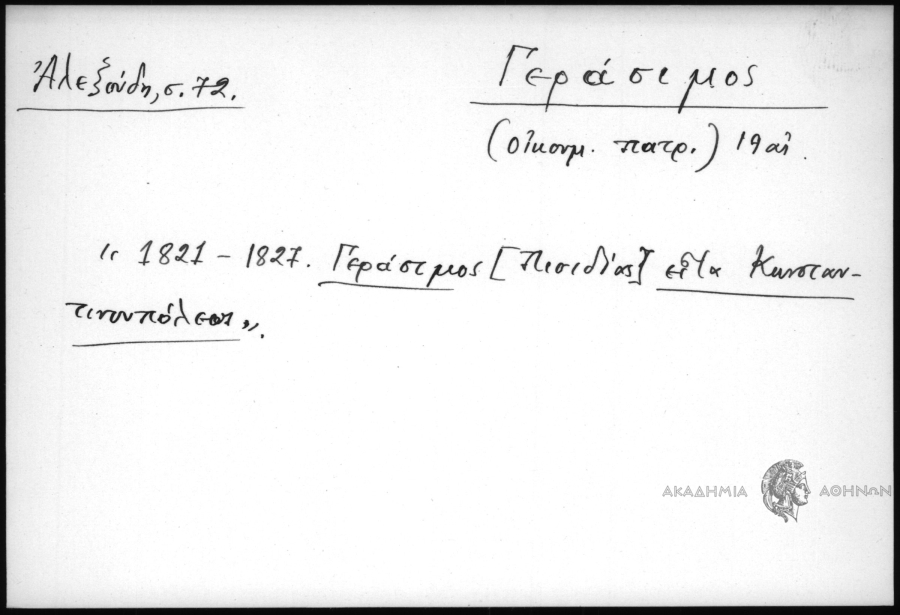 Ἀλεξούδη, σ. 72.
Γεράσιμος
(οἰκουμ. πατρ.) 19 αἰ.
„ 1821 – 1827. Γεράσιμος [Πισιδίας] εἶτα Κωνσταν-
τινουπόλεως„.
ΑΚΑΔΗΜΙΑ ΑΘΗΝΩΝ